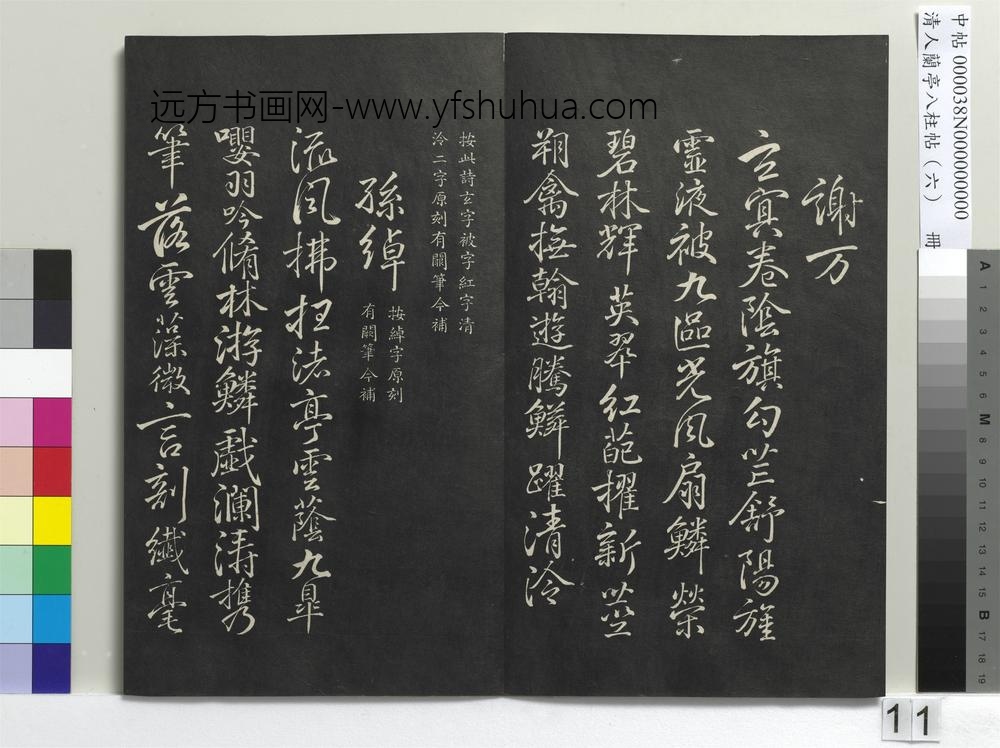 远方书画网-www.yfshuhua.com
中帖 000038N000000000
清人蘭亭八柱帖（六） 冊
謝万
玄冥卷陰旗勾芒舒陽旌
靈液被九區光風扇鱗榮
碧林輝英翠紅葩擢新莖
翔禽撫翰遊騰鱗躍清泠
按此詩玄字被字紅字清
泠二字原刻有闕筆今補
孫綽
按綽字原刻
有闕筆今補
流風拂枉渚亭雲蔭九皐
嚶羽吟脩林游鱗戲瀾濤携
筆落雲藻微言剖纖毫
A 1 2 3 4 5 6 M 8 9 10 11 12 13 14 15 B 17 18 19
11